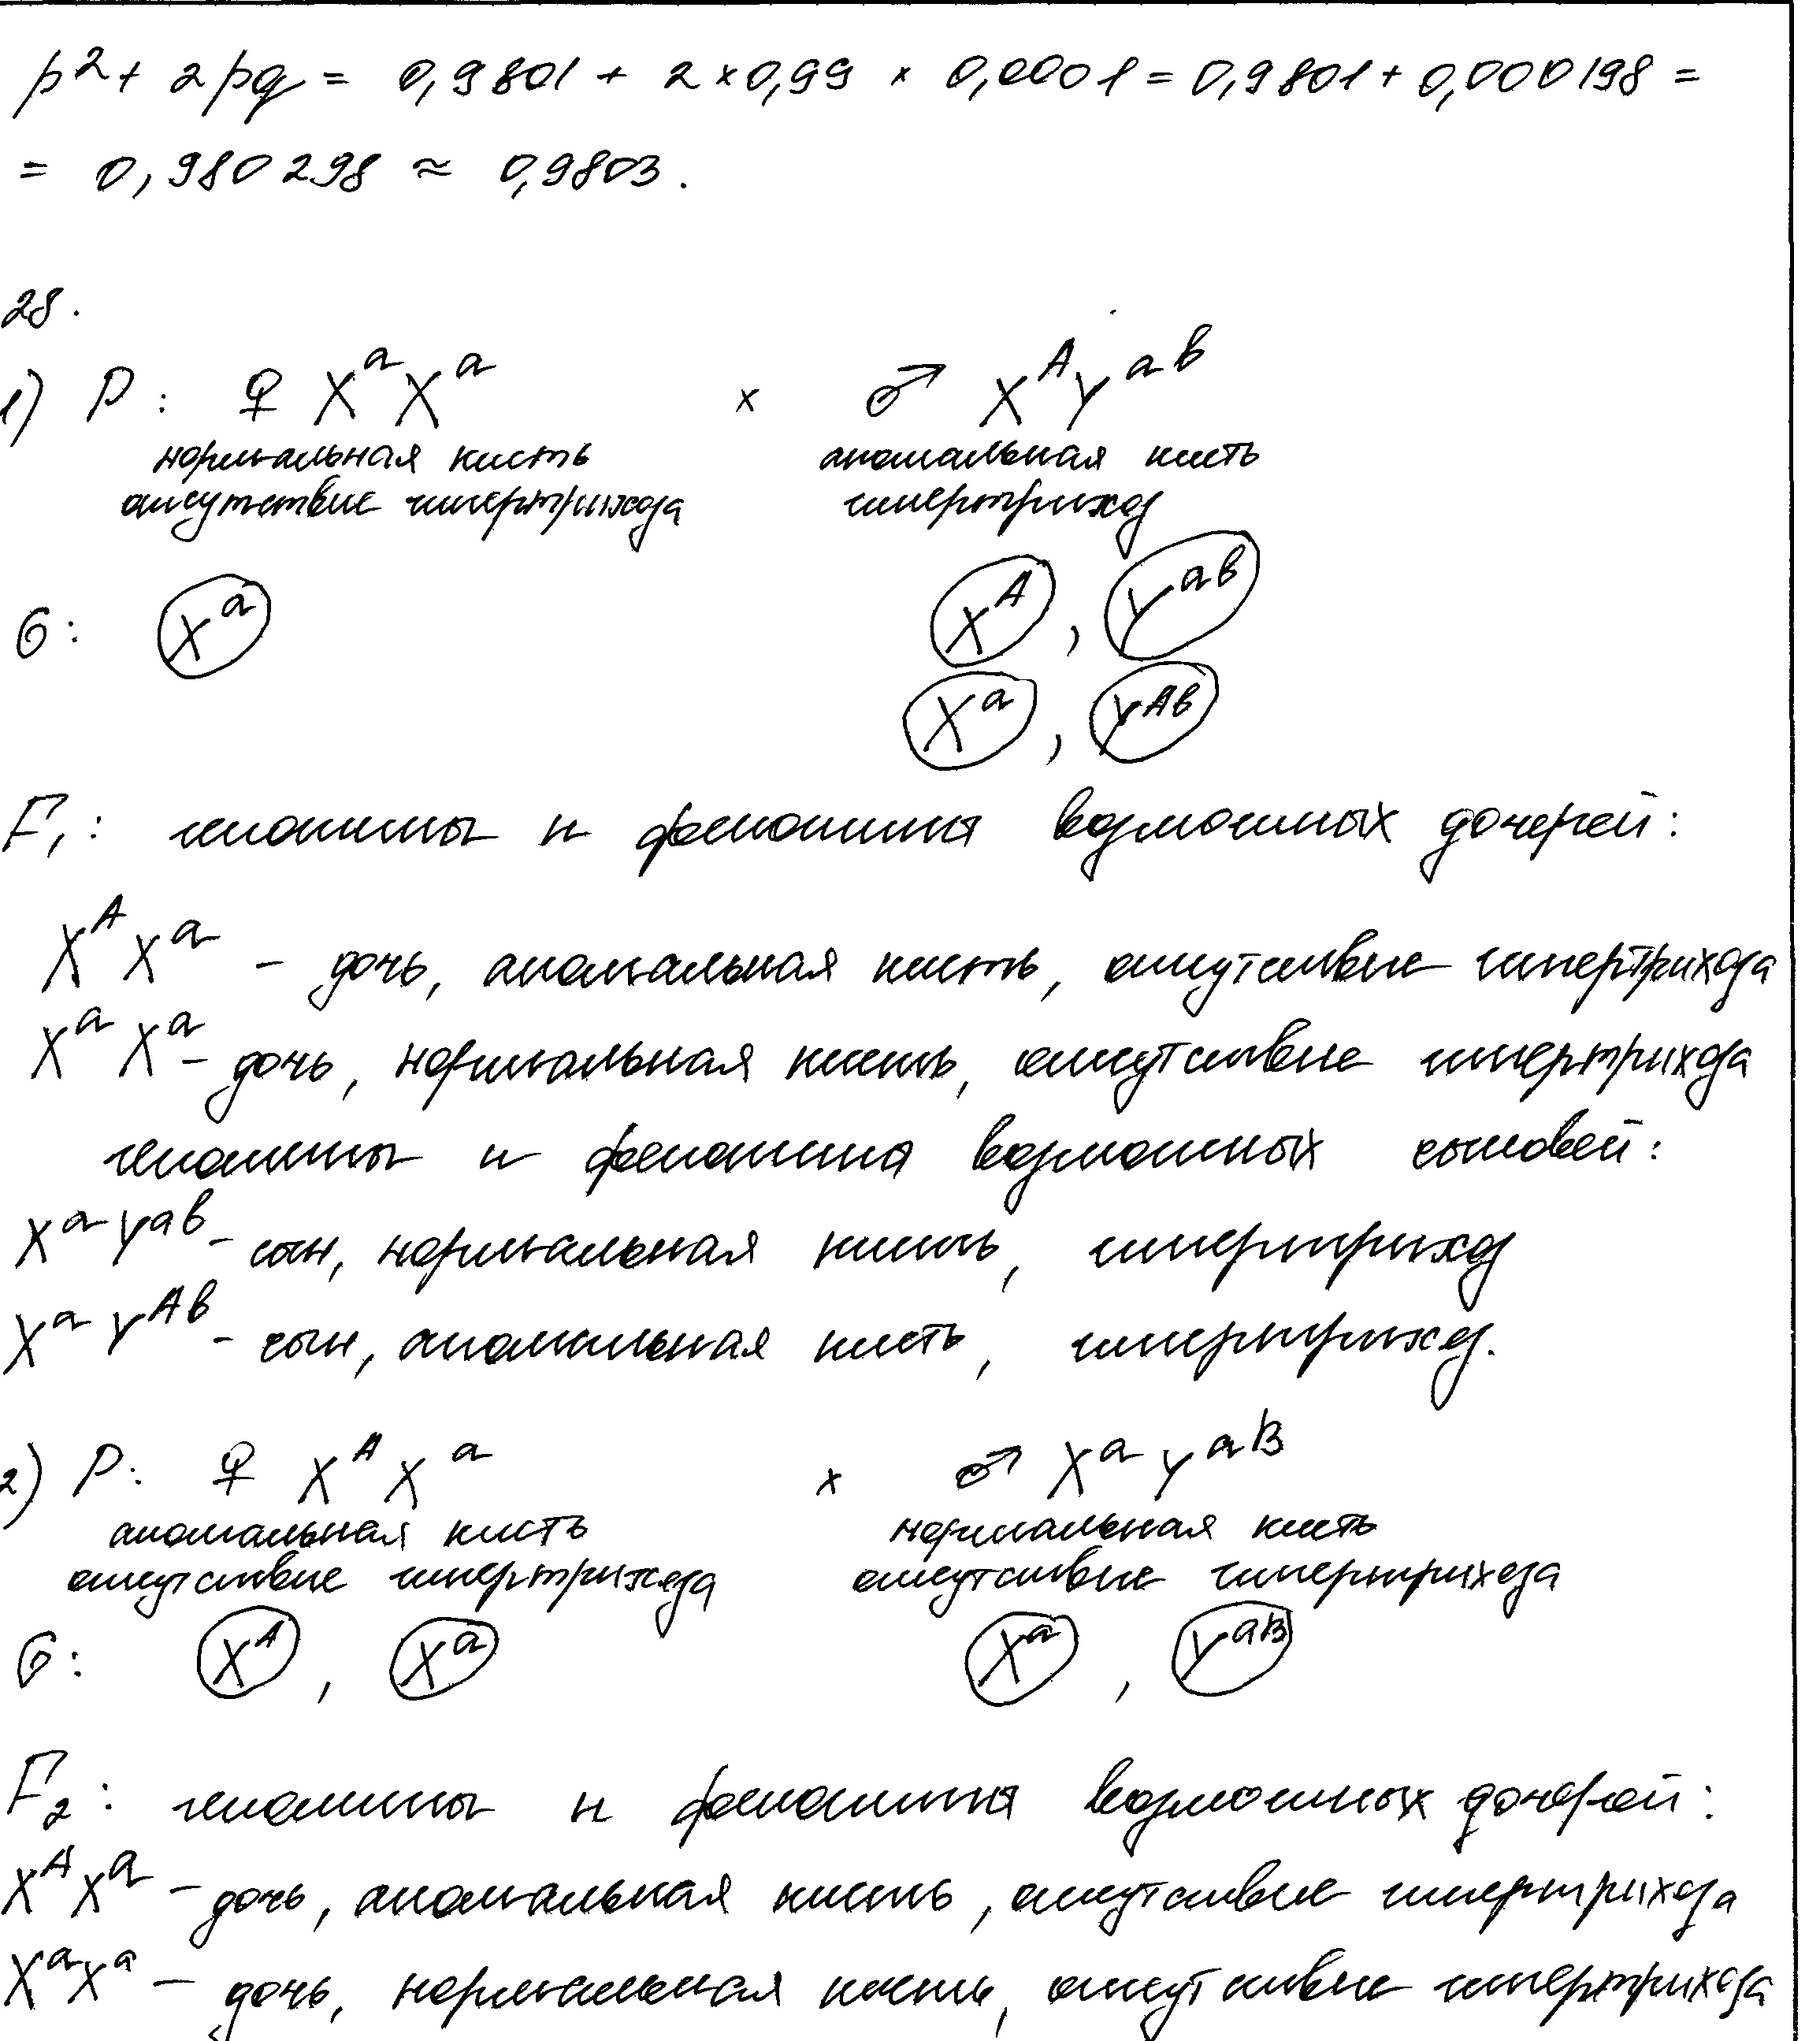 p² + 2pq = 0,9801 + 2 × 0,99 × 0,0001 = 0,9801 + 0,000198 =
= 0,980298 ≈ 0,9803.
28.
1) P: ♀ XᵃXᵃ × ♂ XᴬYᵃᵇ
нормальная кисть аномальная кисть
отсутствие гипертрихоза гипертрихоз
G: Xᵃ Xᴬ, Yᵃᵇ
Xᵃ, Yᴬᵇ
F₁: генотипы и фенотипы возможных дочерей:
XᴬXᵃ – дочь, аномальная кисть, отсутствие гипертрихоза
XᵃXᵃ – дочь, нормальная кисть, отсутствие гипертрихоза
генотипы и фенотипы возможных сыновей:
XᵃYᵃᵇ – сын, нормальная кисть, гипертрихоз
XᵃYᴬᵇ – сын, аномальная кисть, гипертрихоз.
2) P: ♀ XᴬXᵃ × ♂ XᵃYᵃᴮ
аномальная кисть нормальная кисть
отсутствие гипертрихоза отсутствие гипертрихоза
G: Xᴬ, Xᵃ Xᵃ, Yᵃᴮ
F₂: генотипы и фенотипы возможных дочерей:
XᴬXᵃ – дочь, аномальная кисть, отсутствие гипертрихоза
XᵃXᵃ – дочь, нормальная кисть, отсутствие гипертрихоза